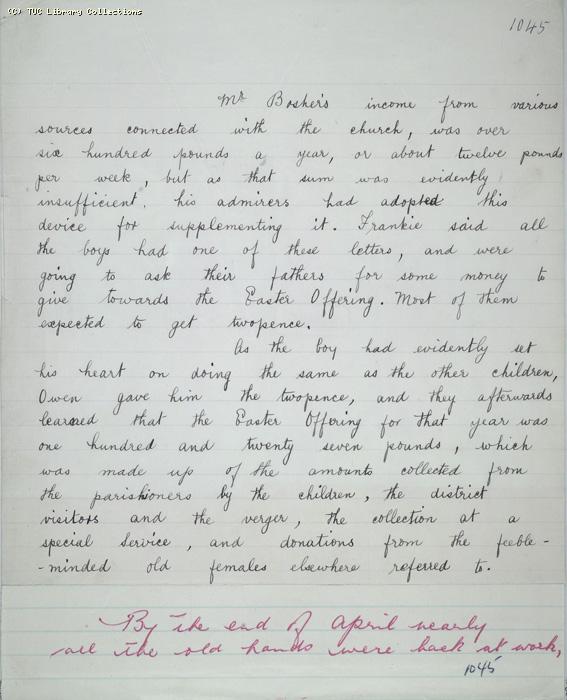 (C) TUC Library Collections
1045
Mr Bosher's income from various
sources connected with the church, was over
six hundred pounds a year, or about twelve pounds
per week, but as that sum was evidently
insufficient, his admirers had adopted this
device for supplementing it. Frankie said all
the boys had one of these letters, and were
going to ask their fathers for some money to
give towards the Easter Offering. Most of them
expected to get twopence.
As the boy had evidently set
his heart on doing the same as the other children,
Owen gave him the twopence, and they afterwards
learned that the Easter Offering for that year was
one hundred and twenty seven pounds, which
was made up of the amounts collected from
the parishioners by the children, the district
visitors and the verger, the collection at a
special Service, and donations from the feeble-
-minded old females elsewhere referred to.
By the end of April nearly
all the old hands were back at work,
1045